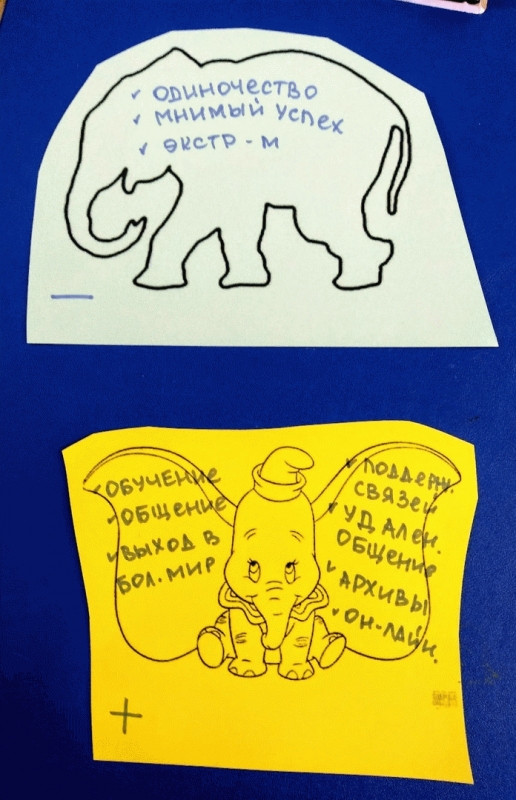 ✓ ОДИНОЧЕСТВО
✓ МНИМЫЙ УСПЕХ
✓ ЭКСТР-М
—
✓ ОБУЧЕНИЕ
✓ ОБЩЕНИЕ
✓ ВЫХОД В
БОЛ. МИР
✓ ПОДДЕРЖ.
СВЯЗЕЙ
✓ УДАЛЕН.
ОБЩЕНИЕ
✓ АРХИВЫ
✓ ОН-ЛАЙН.
+